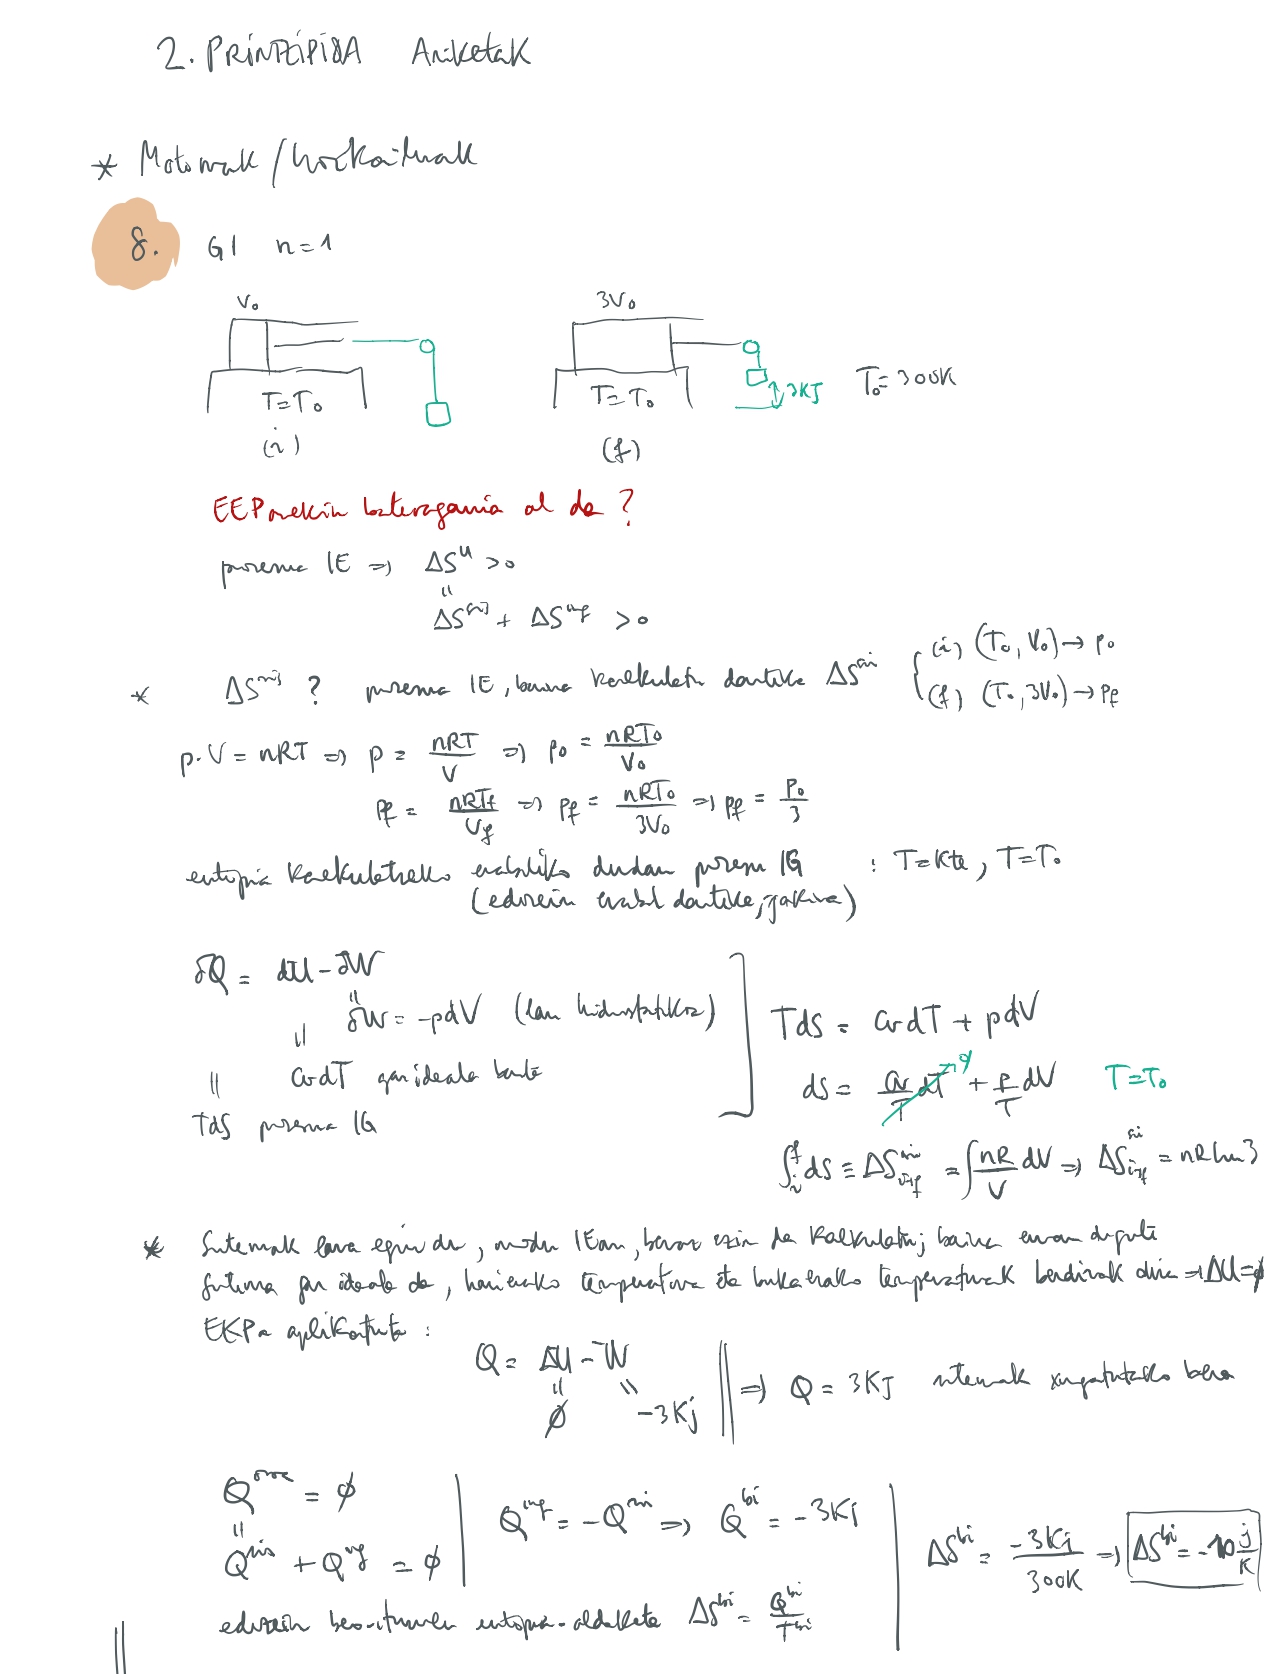 2. PRINTZIPIOA Ariketak
* Motorrak / hozkailuak
8. GI n=1
V₀ 3V₀
T=T₀ T=T₀ 3KJ T₀=300K
(i) (f)
EEParekin bateragarria al da?
prozesua IE ⇒ ΔSᵘ >0
"
ΔSˢⁱˢ + ΔSⁱⁿᵍ >0
* ΔSˢⁱˢ ? prozesua IE, baina kalkulatu daiteke ΔSˢⁱˢ { (i) (T₀, V₀) → p₀
(f) (T₀, 3V₀) → pf
p·V = nRT ⇒ p = nRT/V ⇒ p₀ = nRT₀/V₀
pf = nRTf/Vf ⇒ pf = nRT₀/3V₀ ⇒ pf = p₀/3
entropia kalkulatzeko erabiliko dudan prozesu IG : T=kte, T=T₀
(edozein erabil daiteke, jakina)
δQ = dU - δW
" δW = -pdV (lan hidrostatikoa)
" CvdT gas ideala baita
" TdS prozesua IG
TdS = CvdT + pdV
dS = Cv/T dT + p/T dV T=T₀
∫ᵢᶠ dS ≡ ΔSˢⁱˢi→f = ∫ nR/V dV ⇒ ΔSˢⁱˢi→f = nR ln3
* Sistemak lana egin du, modu IEan, beraz ezin da kalkulatu; baina esan dugu
sistema gas ideala da, hasierako temperatura eta bukaerako temperaturak berdinak dira ⇒ ΔU=∅
EKPa aplikatuta :
Q = ΔU - W ⇒ Q = 3KJ sistemak xurgatutako beroa
" "
∅ -3Kj
Qᵒʳᵒ = ∅
"
Qˢⁱˢ + Qⁱⁿᵍ = ∅
Qⁱⁿᵍ = -Qˢⁱˢ ⇒ Qᵇⁱ = -3Kj
ΔSᵇⁱ = -3Kj/300K ⇒ ΔSᵇⁱ = -10 j/K
edozein bero-iturriren entropia-aldaketa ΔSᵇⁱ = Qᵇⁱ/Tᵇⁱ